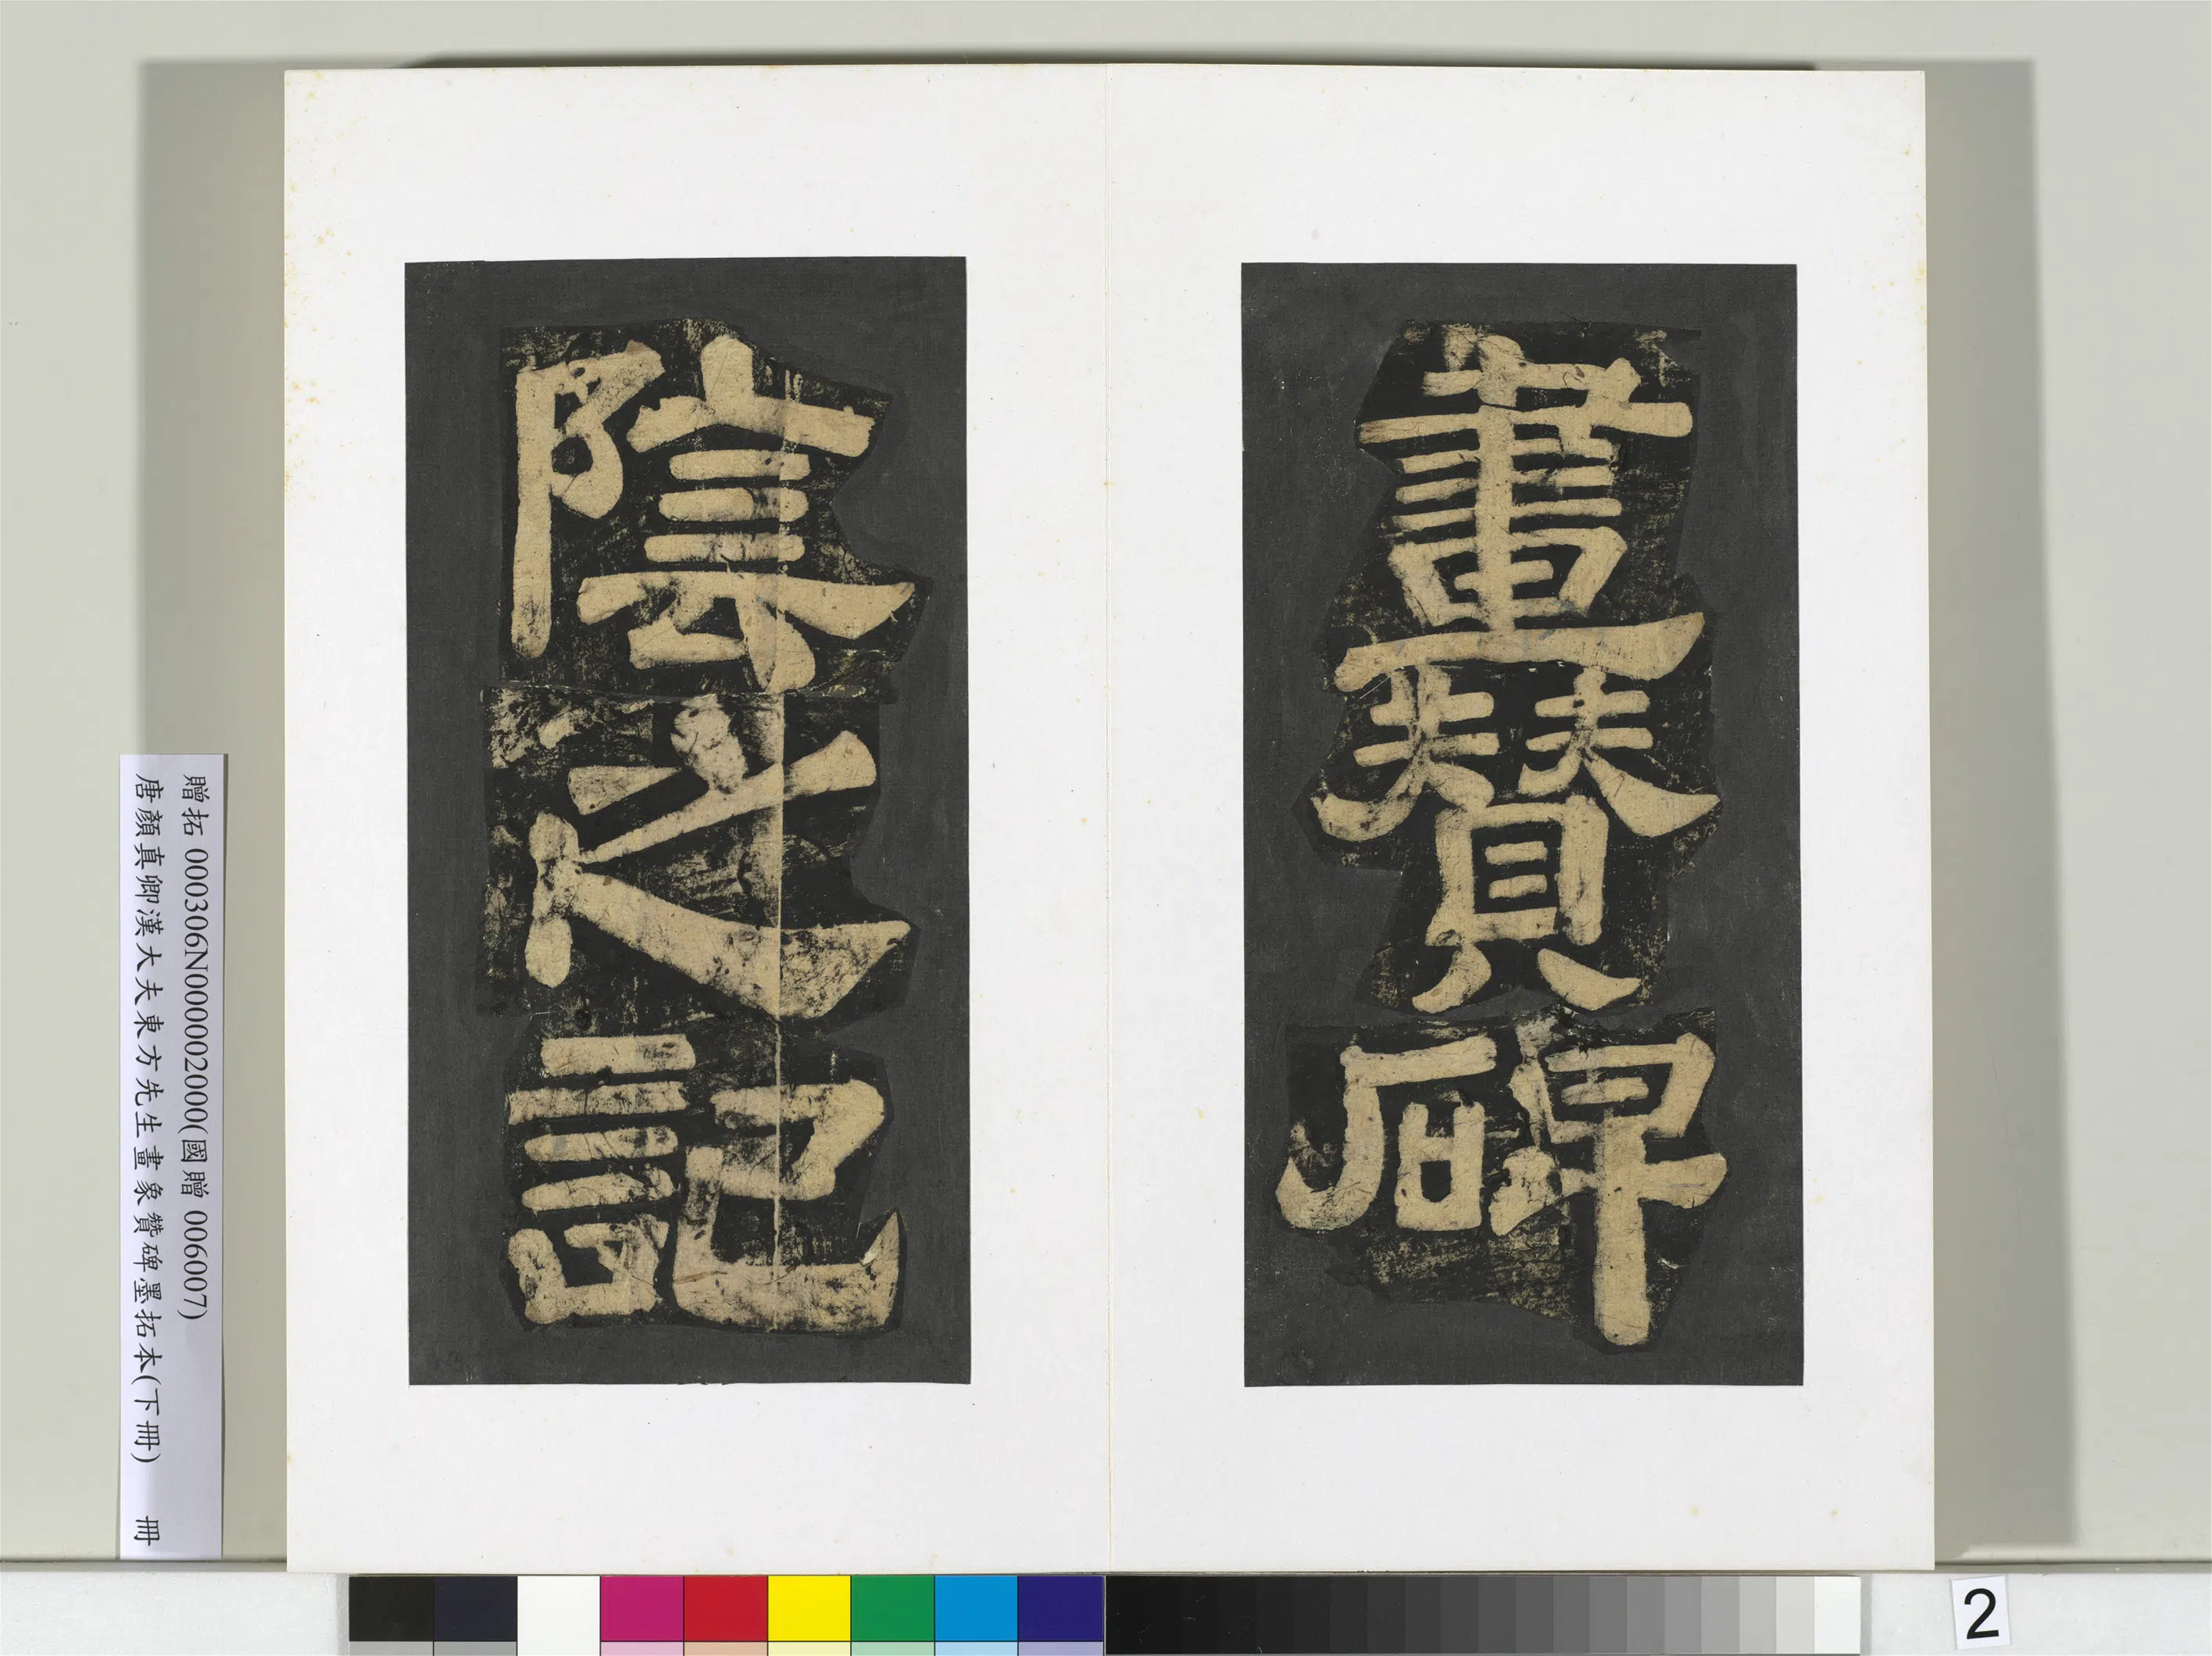 畫贊碑
陰之記
贈拓 000306N000002000(國贈 006007)
唐顏真卿漢大夫東方先生畫象贊碑墨拓本(下冊) 冊
2